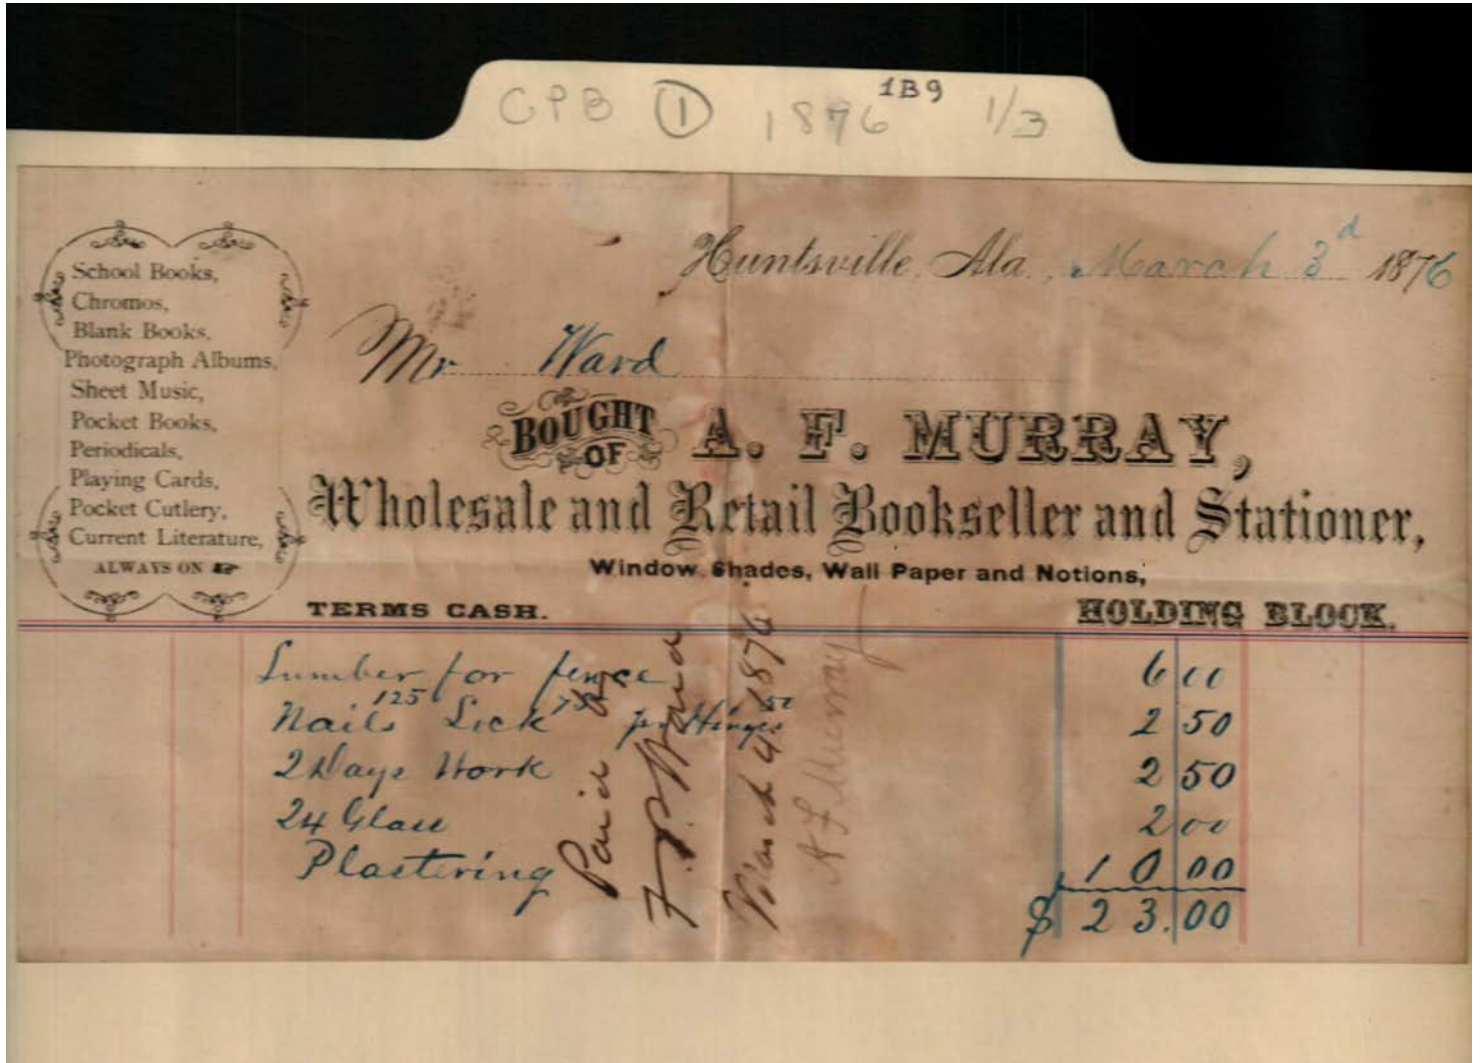 CPB 1 1876 1B9 1/3
School Books,
Chromos,
Blank Books,
Photograph Albums,
Sheet Music,
Pocket Books,
Periodicals,
Playing Cards,
Pocket Cutlery,
Current Literature,
ALWAYS ON
Huntsville, Ala., March 3d 1876
Mr Ward
BOUGHT OF A. F. MURRAY,
Wholesale and Retail Bookseller and Stationer,
Window Shades, Wall Paper and Notions,
TERMS CASH. HOLDING BLOCK.
Lumber for fence 6 00
Nails 125 Lock 75 pr Hinges 50 2 50
2 Days Work 2 50
24 Glass 2 00
Plastering 10 00
$ 23.00
Paid by
F. P. Ward
March 4 1876
A F Murray